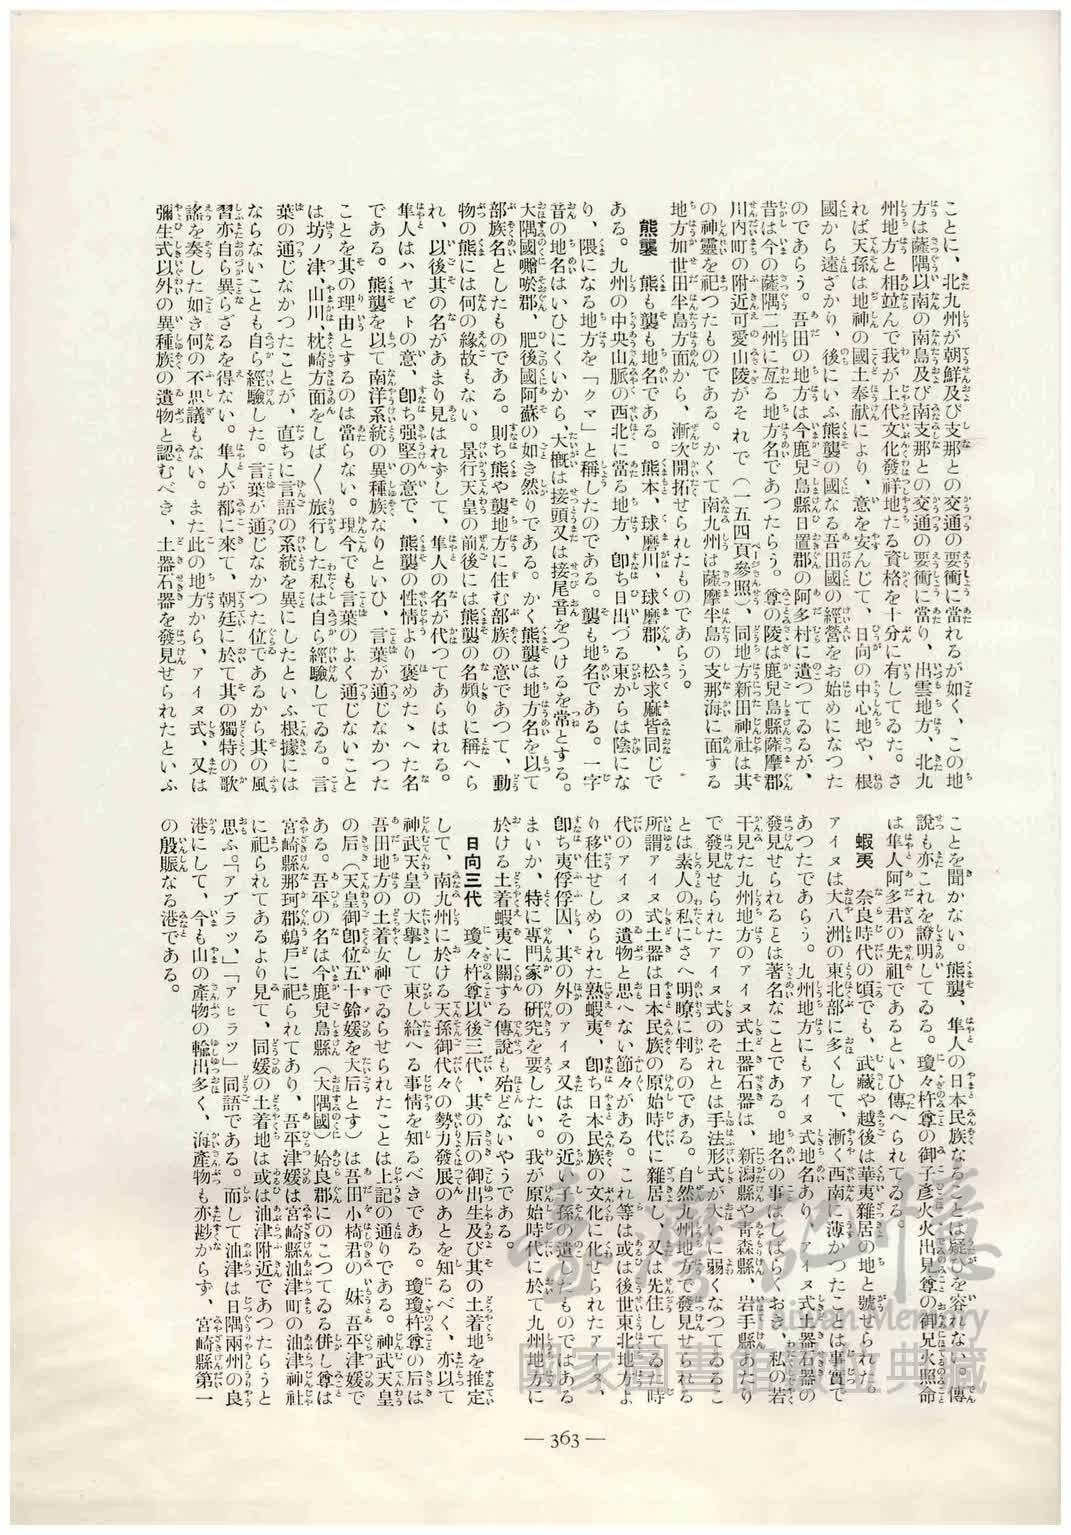 ことに、北九州が朝鮮及び支那との交通の要衝に當れるが如く、この地
方は薩隅以南の南島及び南支那との交通の要衝に當り、出雲地方、北九
州地方と相竝んで我が上代文化發祥地たる資格を十分に有してゐた。さ
れば天孫は地神の國土奉獻により、意を安んじて、日向の中心地や、根
國から遠ざかり、後にいふ熊襲の國なる吾田國の經營をお始めになつた
のであらう。吾田の地方は今鹿兒島縣日置郡の阿多村に遺つてゐるが、
昔は今の薩隅二州に亙る地方名であつたらう。尊の陵は鹿兒島縣薩摩郡
川内町の附近可愛山陵がそれで(一五四頁參照)、同地方新田神社は其
の神靈を祀つたものである。かくて南九州は薩摩半島の支那海に面する
地方加世田半島方面から、漸次開拓せられたものであらう。
熊襲 熊も襲も地名である。熊本、球磨川、球磨郡、松求麻皆同じで
ある。九州の中央山脈の西北に當る地方、卽ち日出づる東からは陰にな
り、隈になる地方を「クマ」と稱したのである。襲も地名である。一字
音の地名はいひにくいから、大槪は接頭又は接尾音をつけるを常とする。
大隅國囎唹郡、肥後國阿蘇の如き然りである。かく熊襲は地方名を以て
部族名としたものである。則ち熊や襲地方に住む部族の意であつて、動
物の熊には何の緣故もない。景行天皇の前後には熊襲の名頻りに稱へら
れ、以後其の名があまり見はれずして、隼人の名が代つてあらはれる。
隼人はハヤビトの意、卽ち强堅の意で、熊襲の性情より褒めたゝへた名
である。熊襲を以て南洋系統の異種族なりといひ、言葉が通じなかつた
ことを其の理由とするのは當らない。現今でも言葉のよく通じないこと
は坊ノ津、山川、枕崎方面をしば〳〵旅行した私は自ら經驗してゐる。言
葉の通じなかつたことが、直ちに言語の系統を異にしたといふ根據には
ならないことも自ら經驗した。言葉が通じなかつた位であるから其の風
習亦自ら異らざるを得ない。隼人が都に來て、朝廷に於て其の獨特の歌
謠を奏した如き何の不思議もない。また此の地方から、アイヌ式、又は
彌生式以外の異種族の遺物と認むべき、土器石器を發見せられたといふ
ことを聞かない。熊襲、隼人の日本民族なることは疑ひを容れない。傳
說も亦これを證明してゐる。瓊々杵尊の御子彥火火出見尊の御兄火照命
は隼人阿多君の先祖であるといひ傳へられてゐる。
蝦夷 奈良時代の頃でも、武藏や越後は華夷雜居の地と號せられた。
アイヌは大八洲の東北部に多くして、漸く西南に薄かつたことは事實で
あつたであらう。九州地方にもアイヌ式地名あり、アイヌ式土器石器の
發見せられるとは著名なことである。地名の事はしばらくおき、私の若
干見た九州地方のアイヌ式土器石器は、新潟縣や靑森縣、岩手縣あたり
で發見せられたアイヌ式のそれとは手法形式が大に弱くなつてゐるこ
とは素人の私にさへ明瞭に判るのである。自然九州地方で發見せられる
所謂アイヌ式土器は日本民族の原始時代に雜居し、又は先住してゐた時
代のアイヌの遺物と思へない節々がある。これ等は或は後世東北地方よ
り移住せしめられた熟蝦夷、卽ち日本民族の文化に化せられたアイヌ、
卽ち夷俘俘囚、其の外のアイヌ又はその近い子孫の遺したものではある
まいか、特に專門家の硏究を要したい。我が原始時代に於て九州地方に
於ける土着蝦夷に關する傳說も殆どないやうである。
日向三代 瓊々杵尊以後三代、其の后の御出生及び其の土着地を推定
して、南九州に於ける天孫御代々の勢力發展のあとを知るべく、亦以て
神武天皇の大擧して東し給へる事情を知るべきである。瓊瓊杵尊の后は
吾田地方の土着女神でゐらせられたことは上記の通りである。神武天皇
の后(天皇御卽位五十鈴媛を大后とす)は吾田小椅君の妹吾平津媛で
ある。吾平の名は今鹿兒島縣(大隅國)姶良郡にのこつてゐる併し尊は
宮崎縣那珂郡鵜戶に祀られてあり、吾平津媛は宮崎縣油津町の油津神社
に祀られてあるより見て、同媛の土着地は或は油津附近であつたらうと
思ふ。「アブラツ」「アヒラツ」同語である。而して油津は日隅兩州の良
港にして、今も山の產物の輸出多く、海產物も亦尠からず、宮崎縣第一
の殷賑なる港である。
— 363 —
臺灣記憶
Taiwan Memory
國家圖書館數位典藏